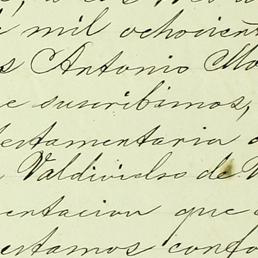 mil ochocient
s Antonio Mo
e suscribimos,
estamentaria
Valdivielso de V
entacion que
estamos confo